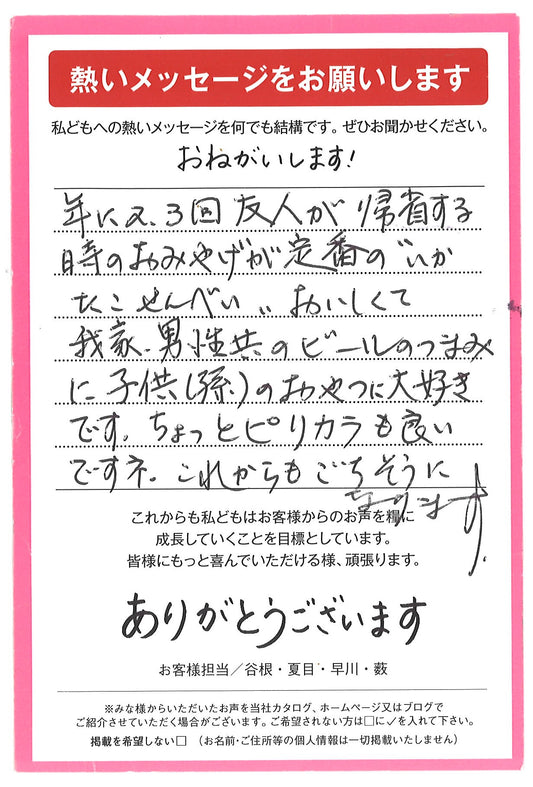 熱いメッセージをお願いします
私どもへの熱いメッセージを何でも結構です。ぜひお聞かせください。
おねがいします!
年に2、3回 友人が 帰省する
時のおみやげが定番の"いか
たこ せんべい" おいしくて
我家.男性共のビールのつまみ
に 子供(孫)のおやつに大好き
です。ちょっとピリカラも良い
ですネ。これからもごちそうに
なります。
これからも私どもはお客様からのお声を糧に
成長していくことを目標としています。
皆様にもっと喜んでいただける様、頑張ります。
ありがとうございます
お客様担当/谷根・夏目・早川・薮
※みな様からいただいたお声を当社カタログ、ホームページ又はブログで
ご紹介させていただく場合がございます。ご希望されない方は□に✓を入れて下さい。
掲載を希望しない□ (お名前・ご住所等の個人情報は一切掲載いたしません)